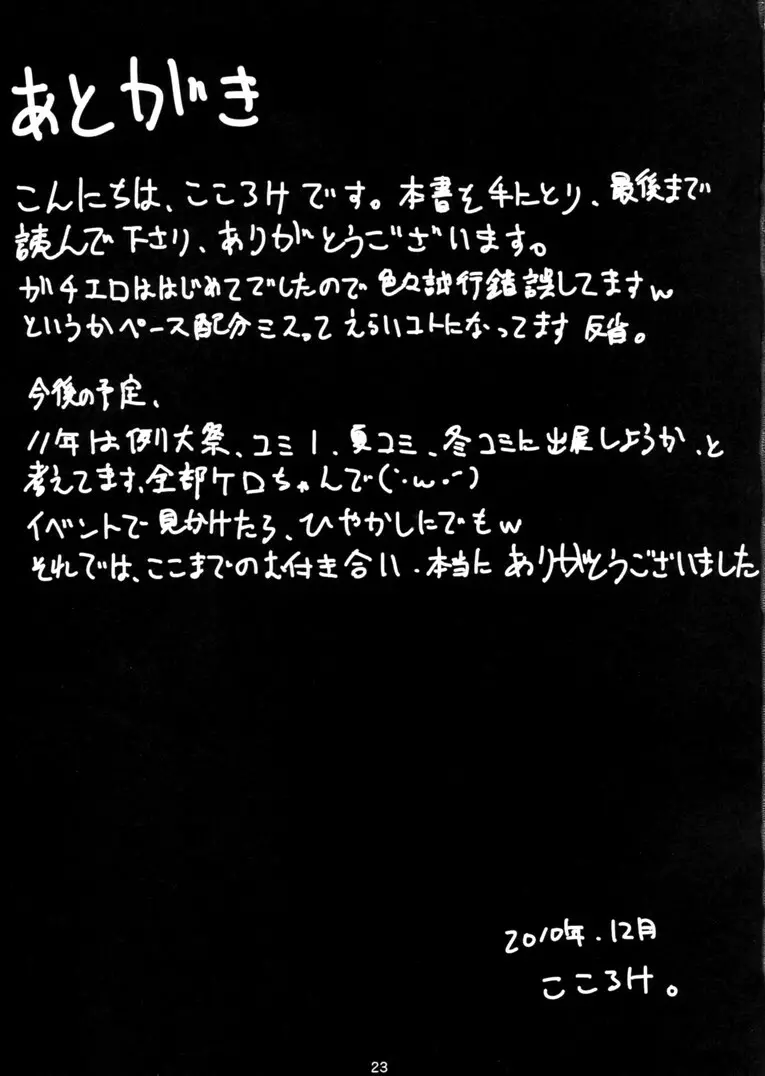 あとがき
こんにちは、こころけです。本書を手にとり、最後まで
読んで下さり、ありがとうございます。
ガチエロははじめてでしたので色々試行錯誤してますw
というかペース配分ミスってえらいコトになってます 反省。
今後の予定、
11年は例大祭、コミ1、夏コミ、冬コミに出展しようか、と
考えてます、全部ケロちゃんで(`･ω･´)
イベントで見かけたら、ひやかしにでもw
それでは、ここまでのお付き合い、本当にありがとうございました
2010年.12月
こころけ。
23